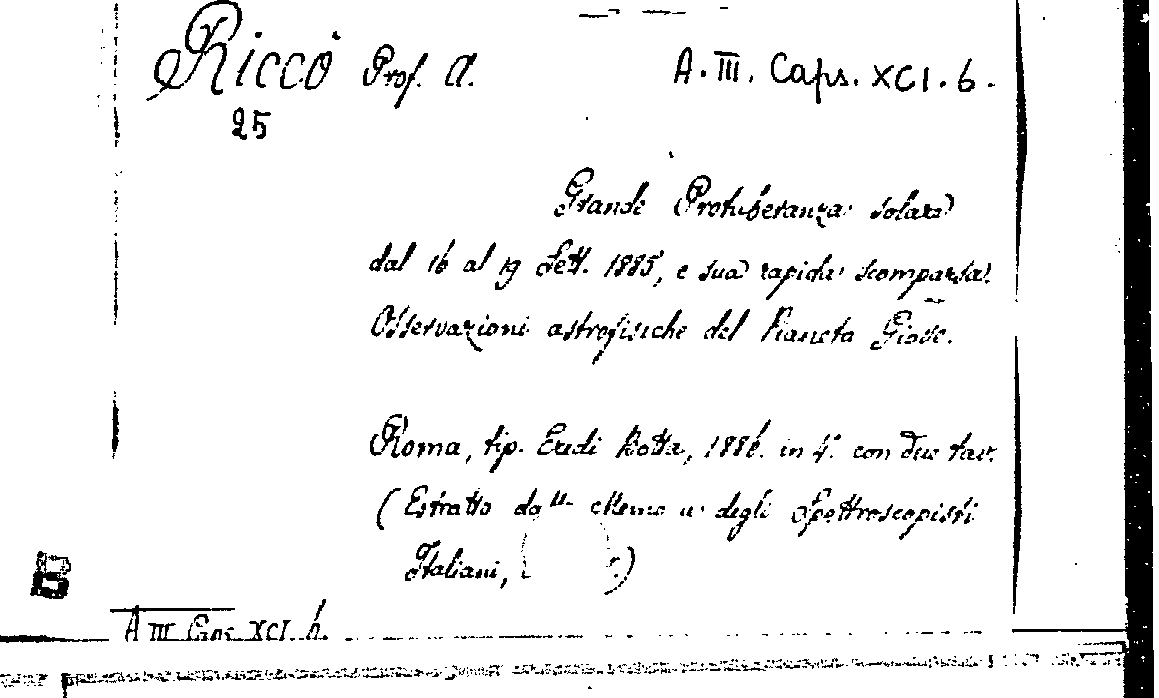 Riccò Prof. A. A. III. Caps. XCI. 6.
25
Grande Protuberanza solare
dal 16 al 19 Sett. 1885, e sua rapida scomparsa.
Osservazioni astrofisiche del Pianeta Giove.
Roma, tip. Eredi Botta, 1886. in 4.° con due tav.
(Estratto dalle degli Spettroscopisti
Italiani, )
A III Caps XCI. 6.